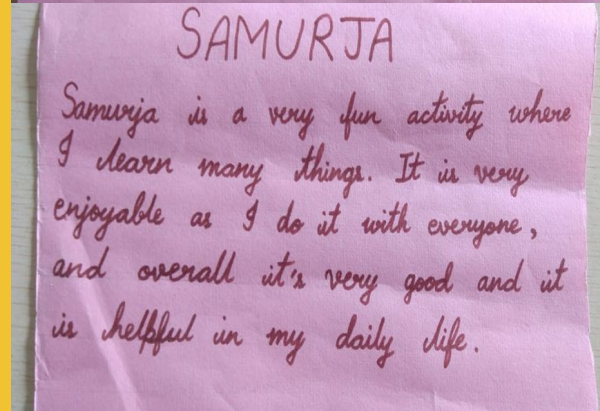 SAMURJA
Samurja is a very fun activity where
I learn many things. It is very
enjoyable as I do it with everyone,
and overall it's very good and it
is helpful in my daily life.